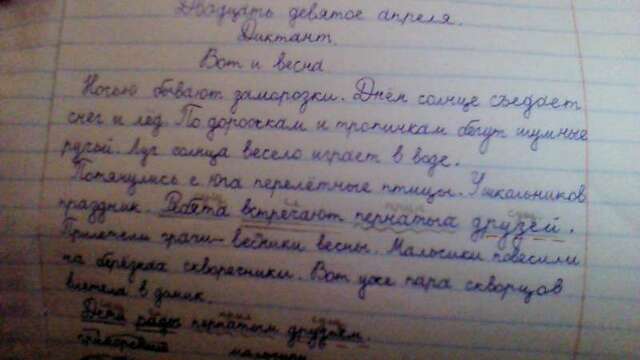 Двадцать девятое апреля.
Диктант.
Вот и весна
Ночью бывают заморозки. Днём солнце съедает
снег и лёд. По дорожкам и тропинкам бегут шумные
ручьи. Луч солнца весело играет в воде.
Потянулись с юга перелётные птицы. У школьников
праздник. Ребята встречают пернатых друзей.
Прилетели грачи - весники весны. Мальчики повесили
на берёзках скворечники. Вот уже пара скворцов
влетела в домик.
Дети рады пернатым друзьям.